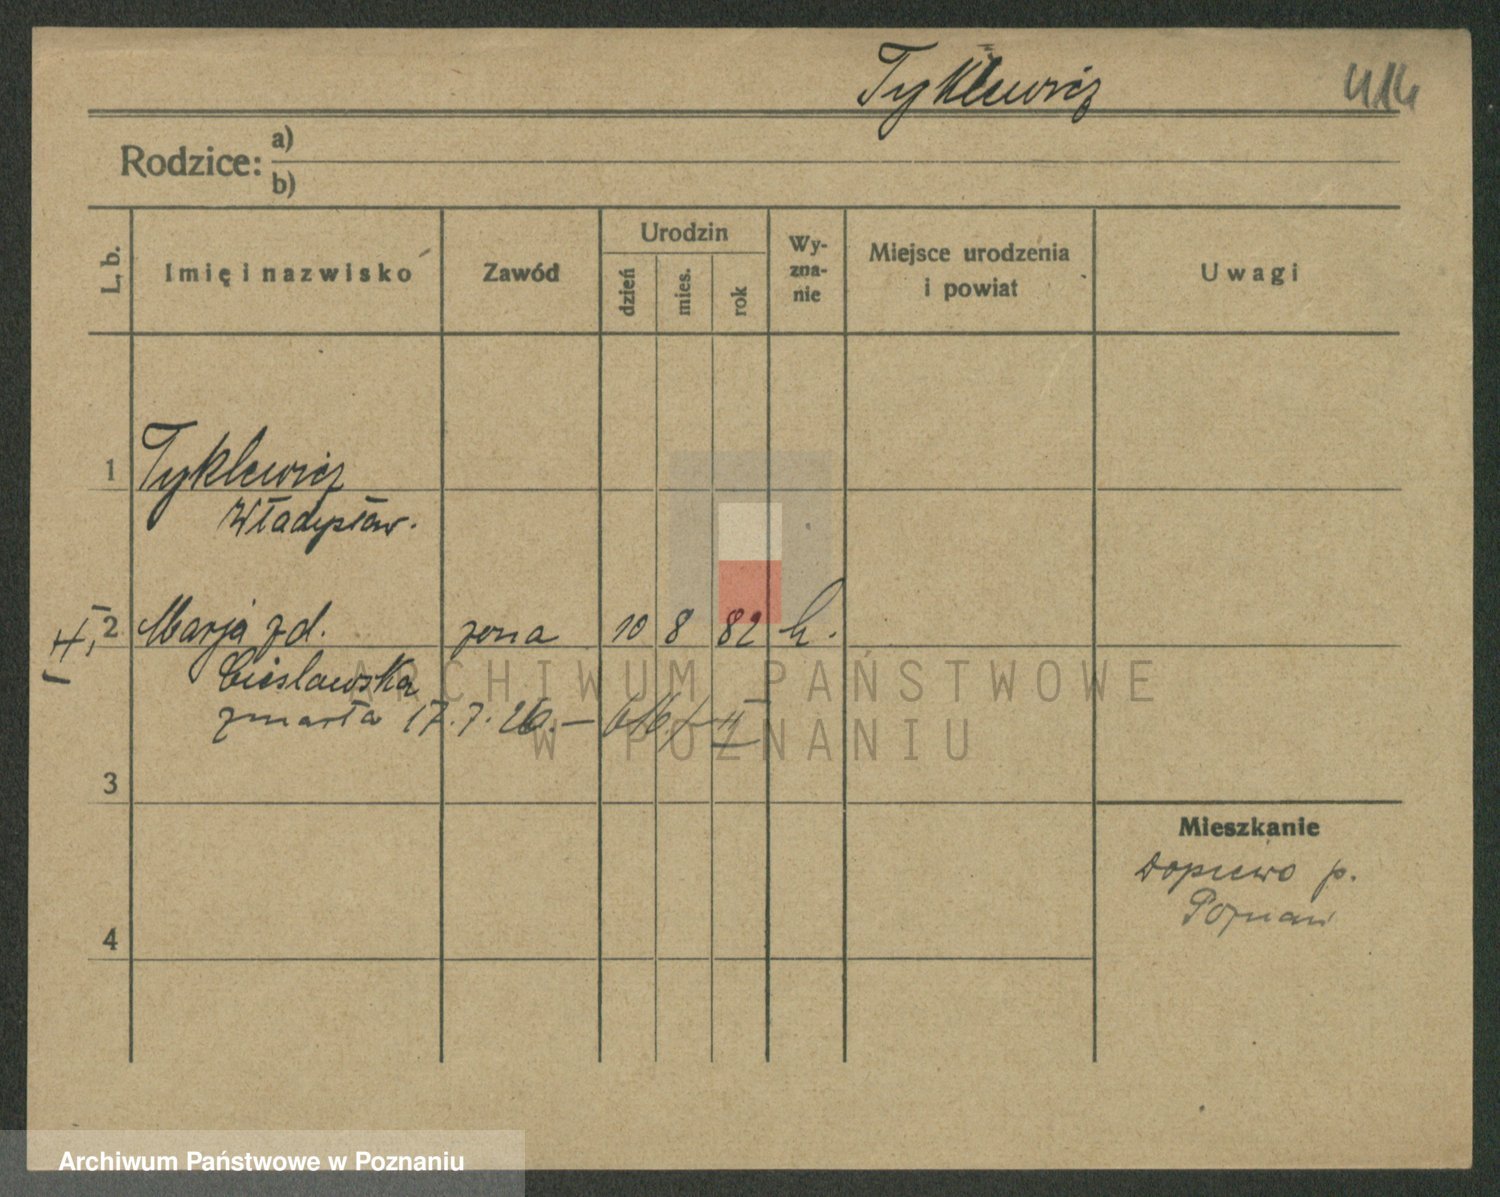 Tyklewicz 414
Rodzice: a)
b)
L. b. Imię i nazwisko Zawód Urodzin dzień mies. rok Wy-zna-nie Miejsce urodzenia i powiat Uwagi
1 Tyklewicz
Władysław.
2 Marja z d. żona 10 8 82 k.
Cieslawska
zmarła 17.7.26. –
3
Mieszkanie
Dopiewo p.
Poznań
4
ARCHIWUM PAŃSTWOWE
W POZNANIU
Archiwum Państwowe w Poznaniu